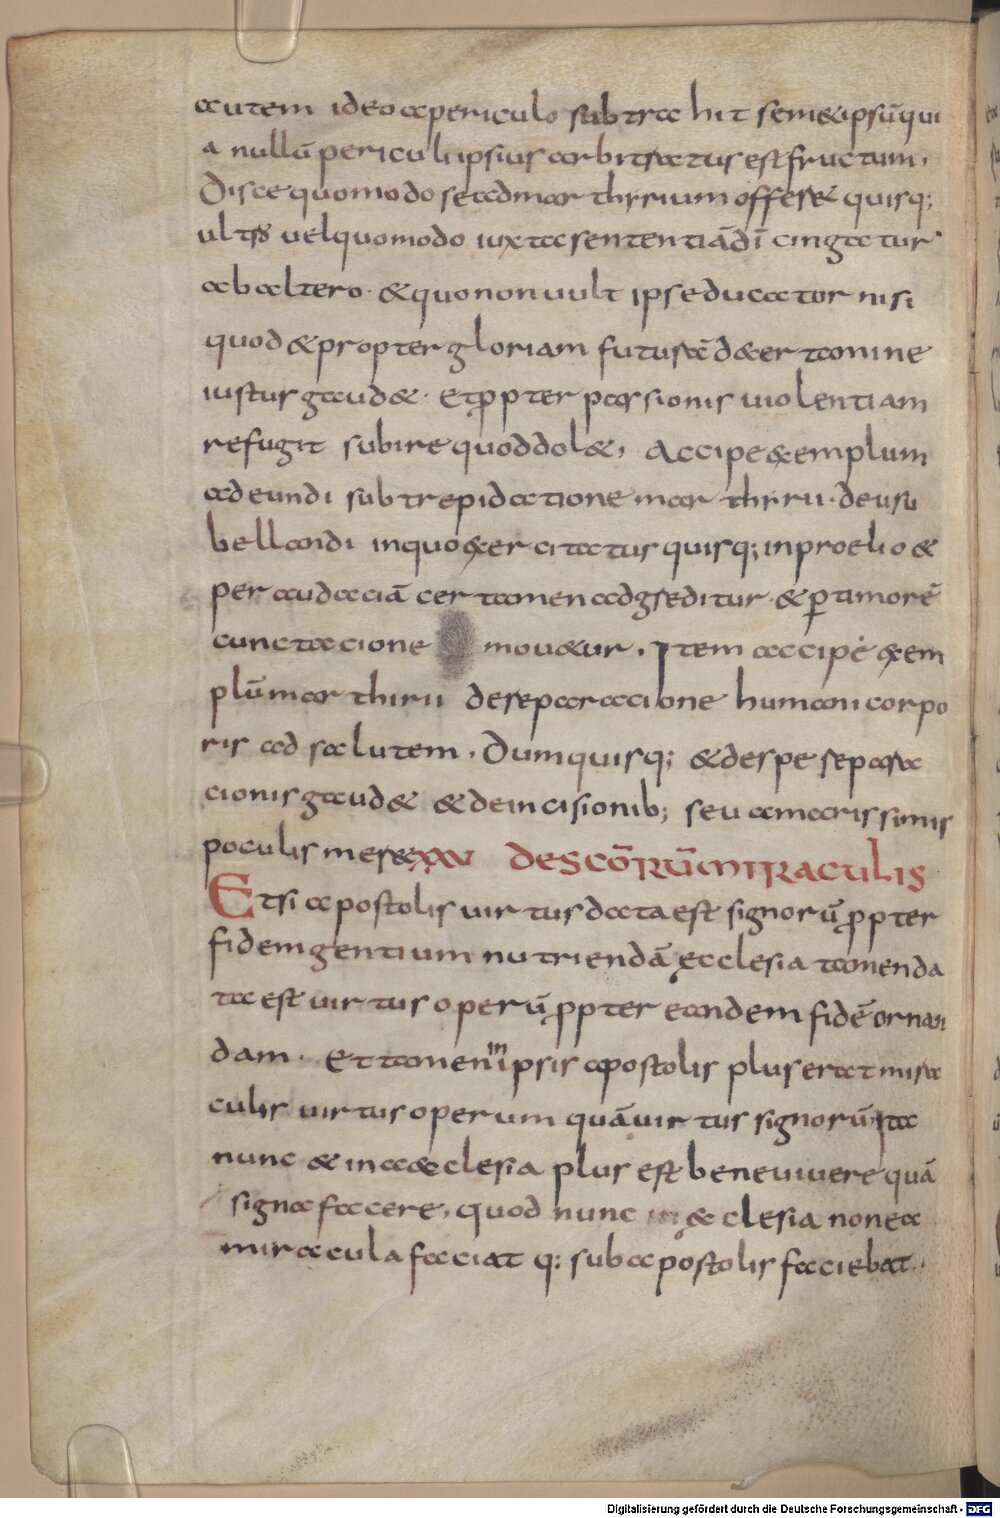 autem ideo a periculo subtrahit sem&ipsū qui
a nullū periculi ipsius arbitratus est fructum.
Disce quomodo se ad marthyrium offer& quisq;
ultro uel quomodo iuxta sententiā dn̄i cingatur
ab altero. & quo non uult ipse ducator nisi
quod & propter gloriam futurā de certamine
iustus gaud&. Et ꝓpter passionis uiolentiam
refugit subire quod dol&, Accipe exemplum
adeundi sub trepidatione marthyrii. de usu
bellandi in quo exercitatus quisq; in proelio &
per audaciā certamen adgreditur & ꝑ timorē
cunctaccione mou&ur. Item accipe exem
plū marthirii de separaccione humani corpo
ris ad salutem. Dum quisq; & de spe separa
cionis gaud& & de incisionib; seu amarissimis
poculis mer& XXV DE SCŌRŪ MIRACULIS
Etsi apostolis uirtus data est signorū ꝓpter
fidem gentium nutriendā ęcclesia tamen da
ta est uirtus operū ꝓpter eandem fidē ornan
dam. Et tamen in ipsis apostolis plus erat mira
culis uirtus operum quā uirtus signorū Ita
nunc & in aecclesia plus est bene uiuere quā
signa facere. quod nunc in ęcclesia non ea
miracula faciat q; sub apostolis faciebat.
Digitalisierung gefördert durch die Deutsche Forschungsgemeinschaft - DFG